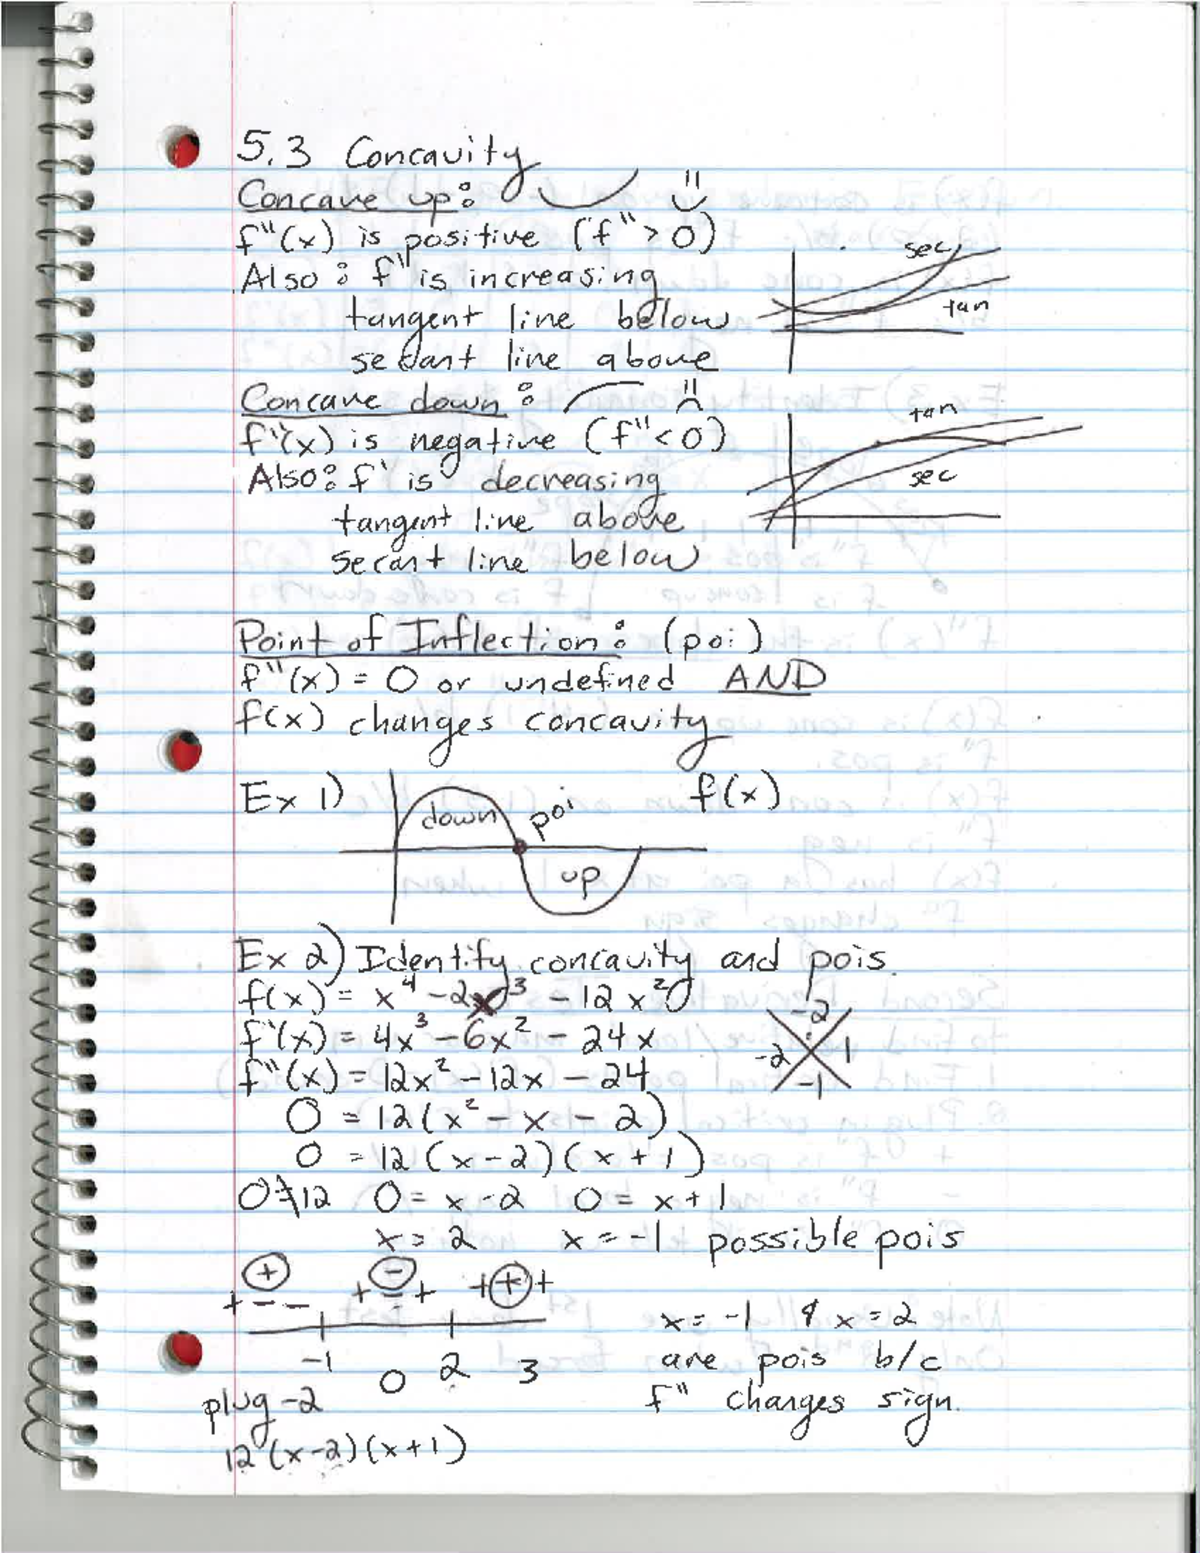 5.3 Concavity
Concave up:
f"(x) is positive (f" > 0)
Also: f' is increasing
tangent line below
secant line above
sec
tan
Concave down:
f"(x) is negative (f" < 0)
Also: f' is decreasing
tangent line above
secant line below
tan
sec
Point of Inflection: (poi)
f"(x) = 0 or undefined AND
f(x) changes concavity
Ex 1) f(x)
down poi
up
Ex 2) Identify concavity and pois.
f(x) = x⁴ - 2x³ - 12x²
f'(x) = 4x³ - 6x² - 24x
f"(x) = 12x² - 12x - 24
0 = 12(x² - x - 2)
0 = 12(x-2)(x+1)
-2
-2 1
-1
0≠12 0 = x-2 0 = x+1
x = 2 x = -1 possible pois
+ - +
+ - - + - + + + +
-1 0 2 3
plug -2
12(x-2)(x+1)
x = -1 & x = 2
are pois b/c
f" changes sign.